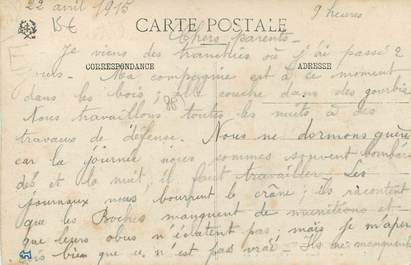 22 avril 1915
9 heures
15€
CARTE POSTALE
Chers parents
Je viens des tranchées où j'ai passé 2
jours. Ma compagnie est à ce moment
CORRESPONDANCE
ADRESSE
dans les bois; elle couche dans des gourbis
Nous travaillons toutes les nuits à des
travaux de défense. Nous ne dormons guère
car la journée nous sommes souvent bombar
dés et la nuit, il faut travailler. Les
journaux nous bourrent le crâne; ils racontent
que les Boches manquent de munitions et
que leurs obus n'éclatent pas; mais je m'aper
çois bien que ce n'est pas vrai. Ils ne manquent